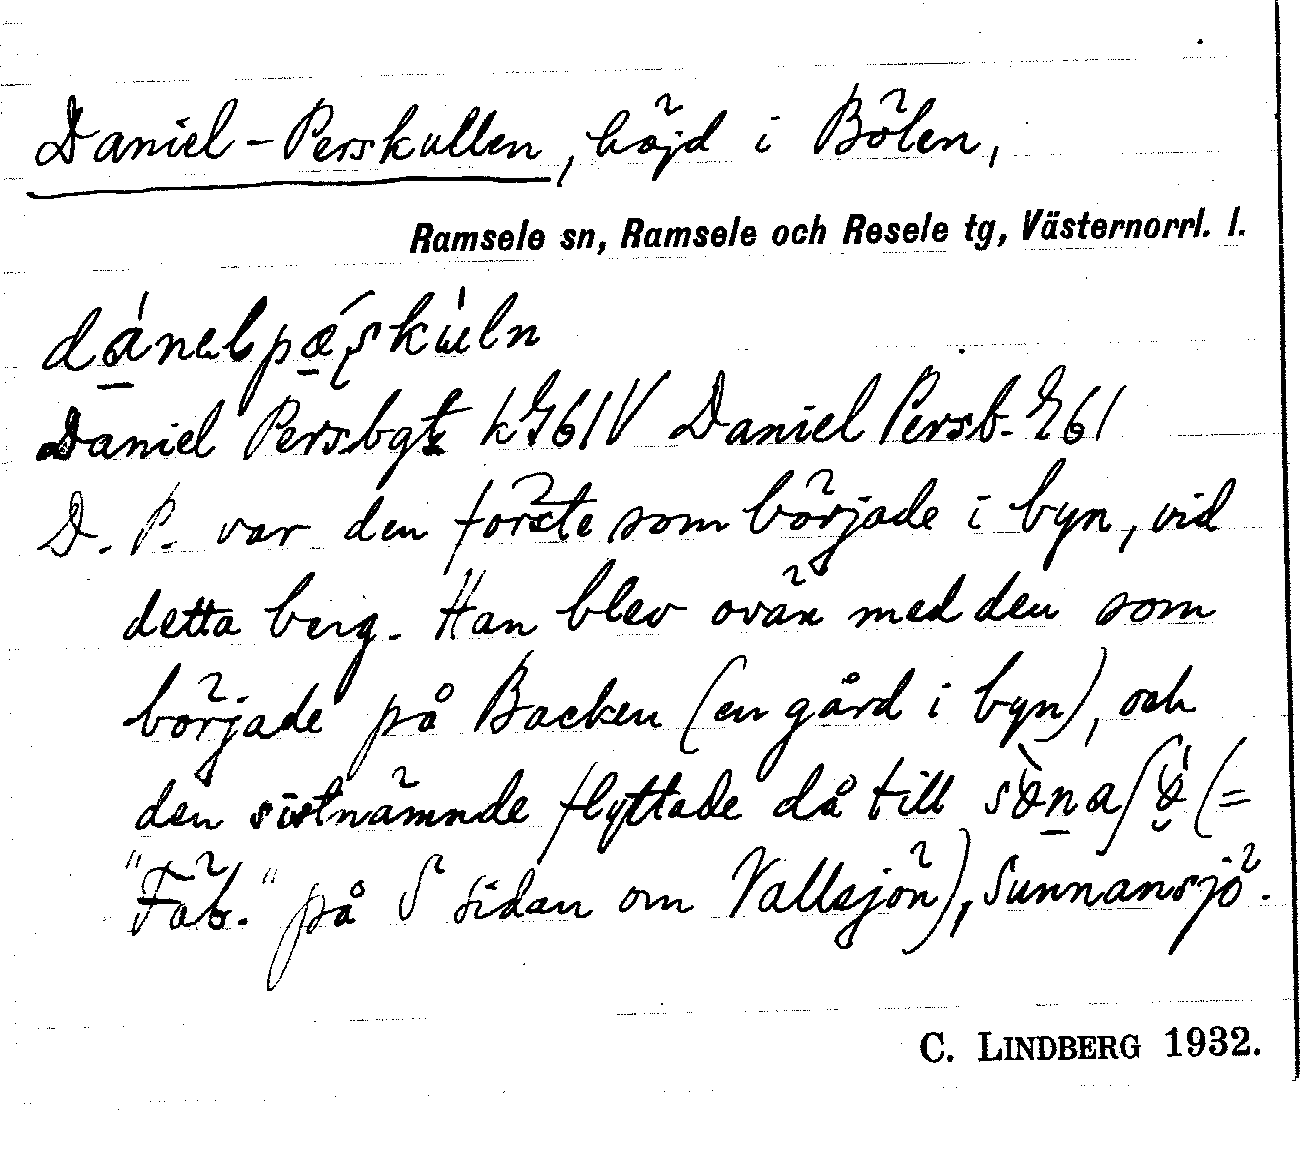 Daniel-Perskullen, höjd i Bölen,
Ramsele sn, Ramsele och Resele tg, Västernorrl. l.
Daniel Persbgt k Y61V Daniel Persb. E61
D. P. var den förste som började i byn, vid
detta berg. Han blev ovän med den som
började på Backen (en gård i byn), och
den sistnämnde flyttade då till (=
"Fäb." på S sidan om Vallsjön), Sunnansjö.
C. LINDBERG 1932.